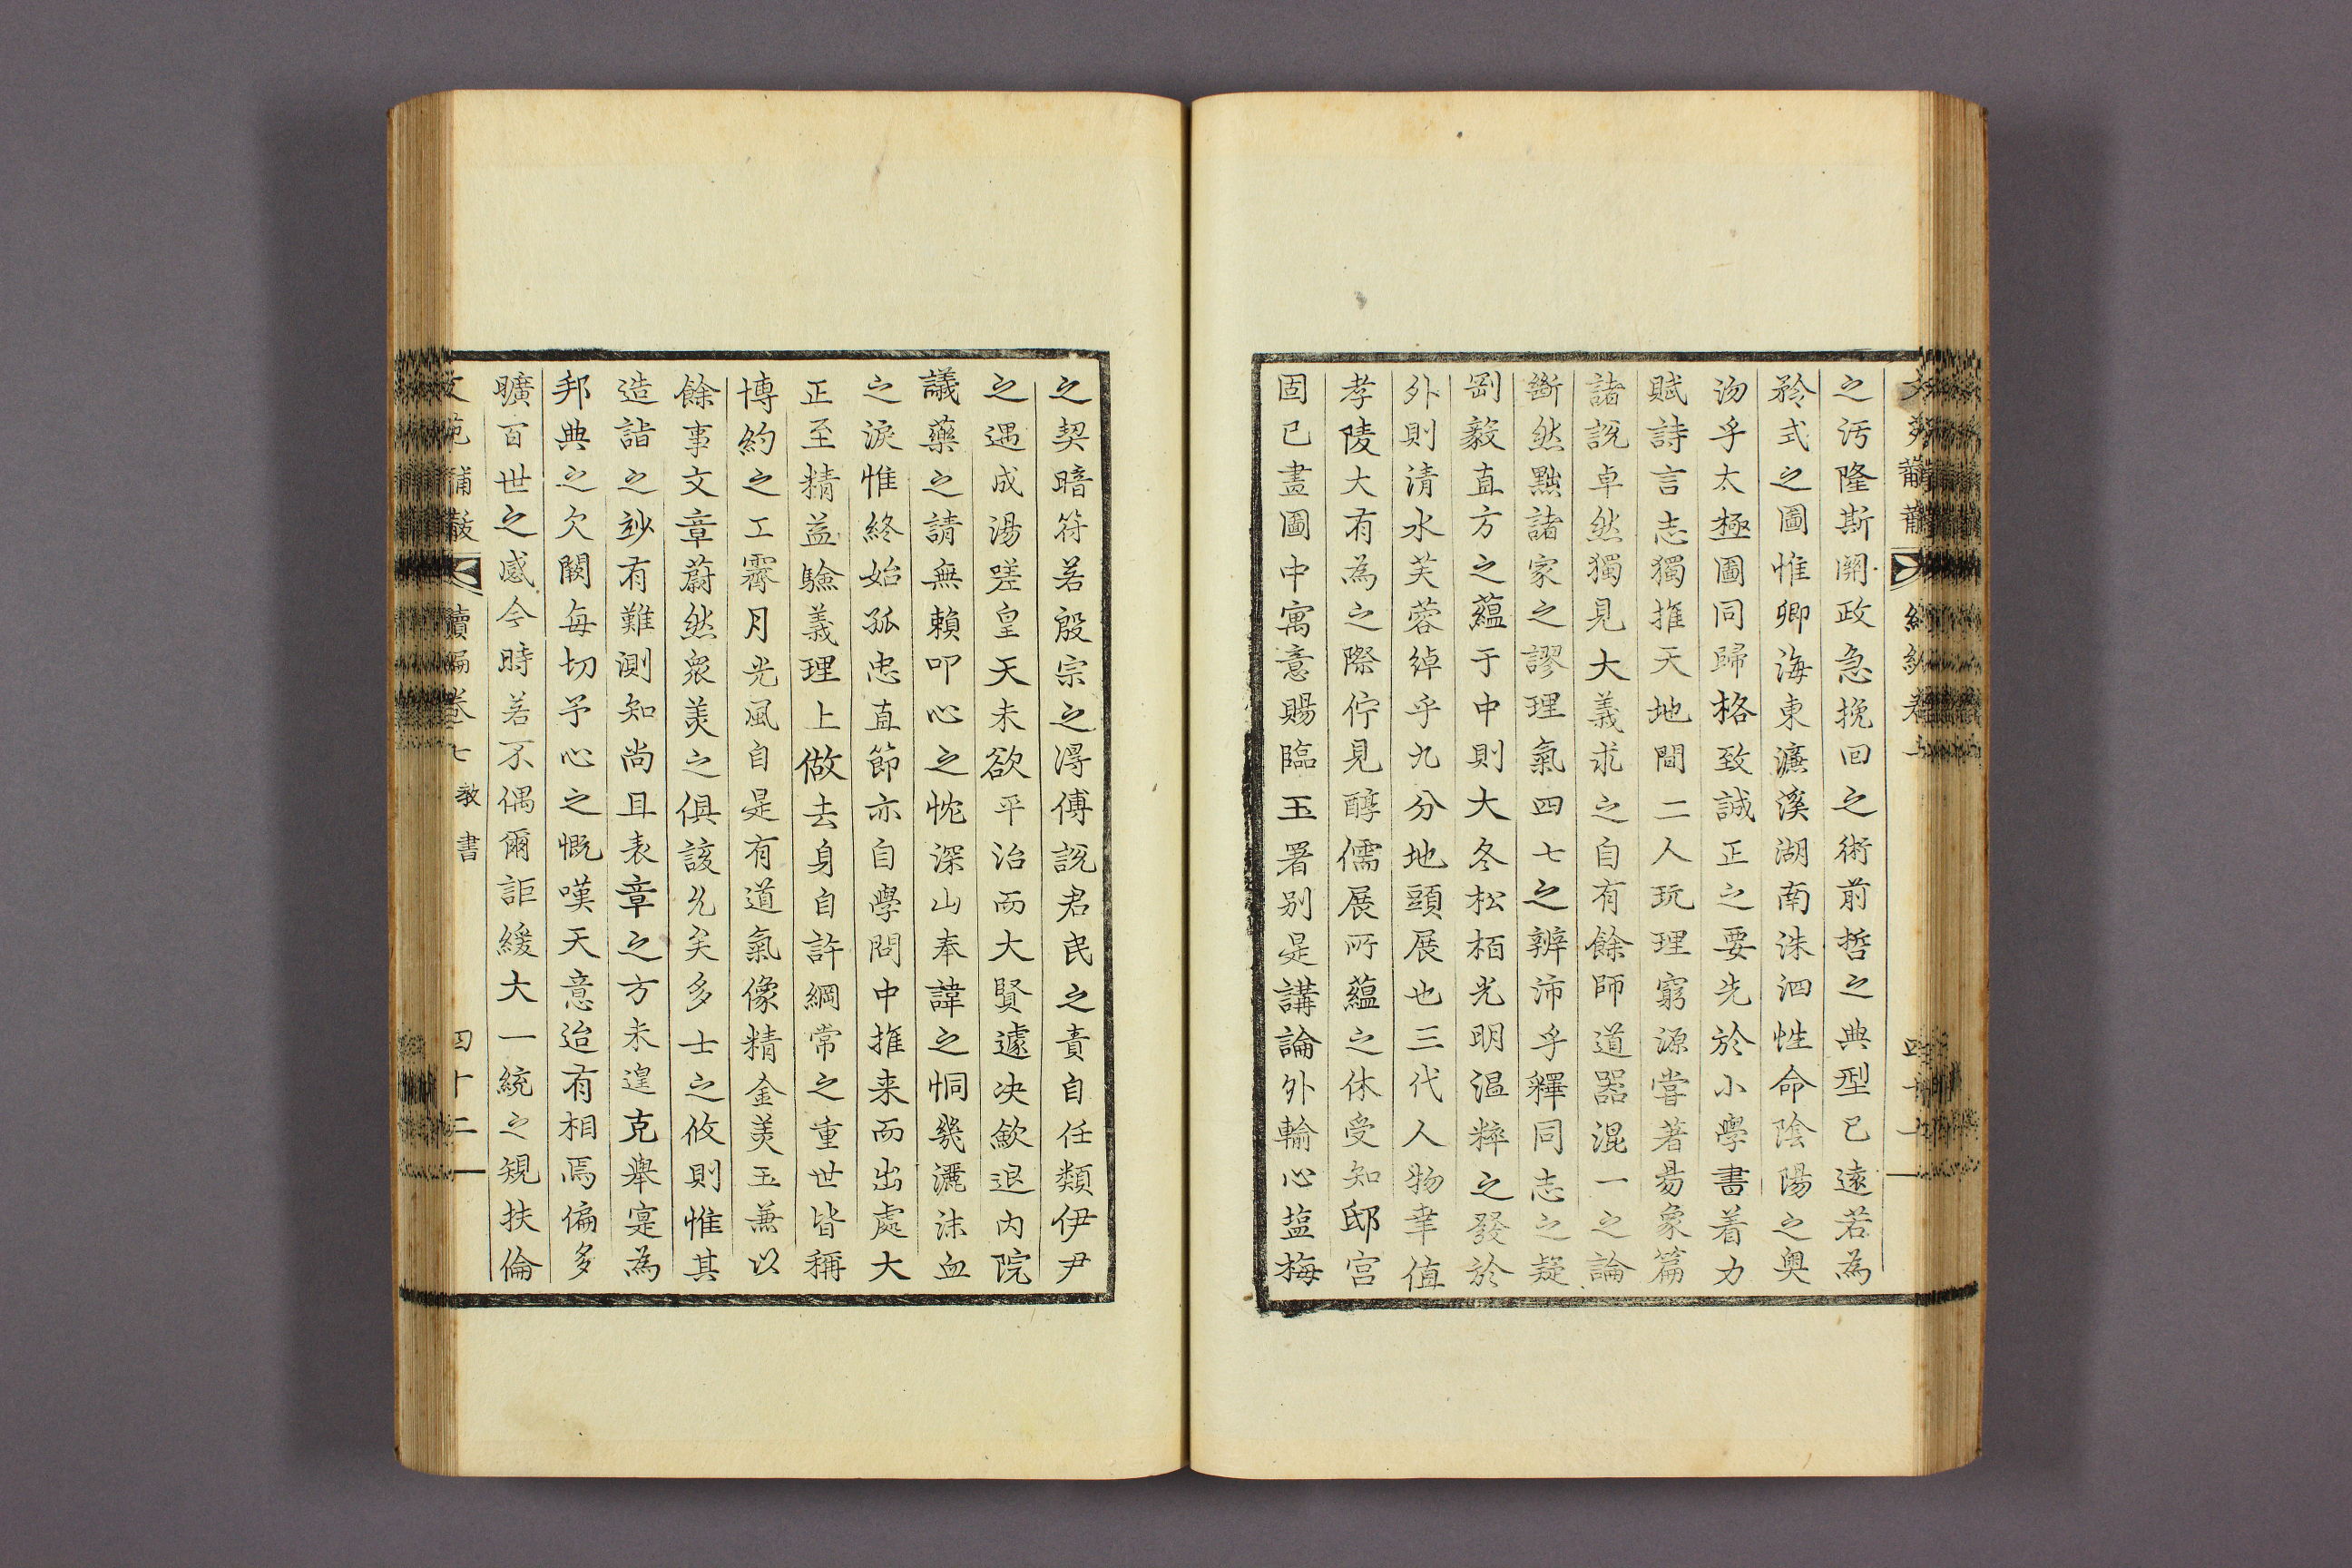 之汚隆斯關政急挽回之術前哲之典型已遠若為
矜式之圖惟卿海東濂溪湖南洙泗性命陰陽之奧
沕乎太極圖同歸格致誠正之要先於小學書着力
賦詩言志獨推天地間二人玩理窮源嘗著易象篇
諸說卓然獨見大義求之自有餘師道器混一之論
斷然黜諸家之謬理氣四七之辨沛乎釋同志之疑
剛毅直方之蘊于中則大冬松栢光明溫粹之發於
外則清水芙蓉綽乎九分地頭展也三代人物幸值
孝陵大有為之際佇見醇儒展所蘊之休受知邸宮
固已畫圖中寓意賜臨玉署別是講論外輸心塩梅
之契暗符若殷宗之淂傅說君民之責自任類伊尹
之遇成湯嗟皇天未欲平治而大賢遽決歛退內院
議藥之請無賴叩心之忱深山奉諱之恫幾灑沬血
之淚惟終始孤忠直節亦自學問中推来而出處大
正至精益驗義理上做去身自許綱常之重世皆稱
博約之工霽月光風自是有道氣像精金美玉兼以
餘事文章蔚然衆美之俱該允矣多士之攸則惟其
造詣之玅有難測知尚且表章之方未遑克舉寔為
邦典之欠闕每切予心之慨嘆天意迨有相焉偏多
曠百世之感今時若不偶爾詎緩大一統之規扶倫
續編卷七 教書 四十二